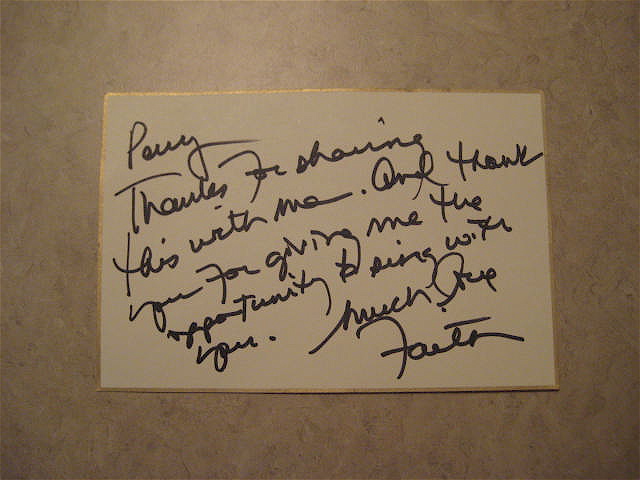 Perry
Thanks for sharing
this with me. And thank
you for giving me the
opportunity to sing with
you. Much Love
Faith